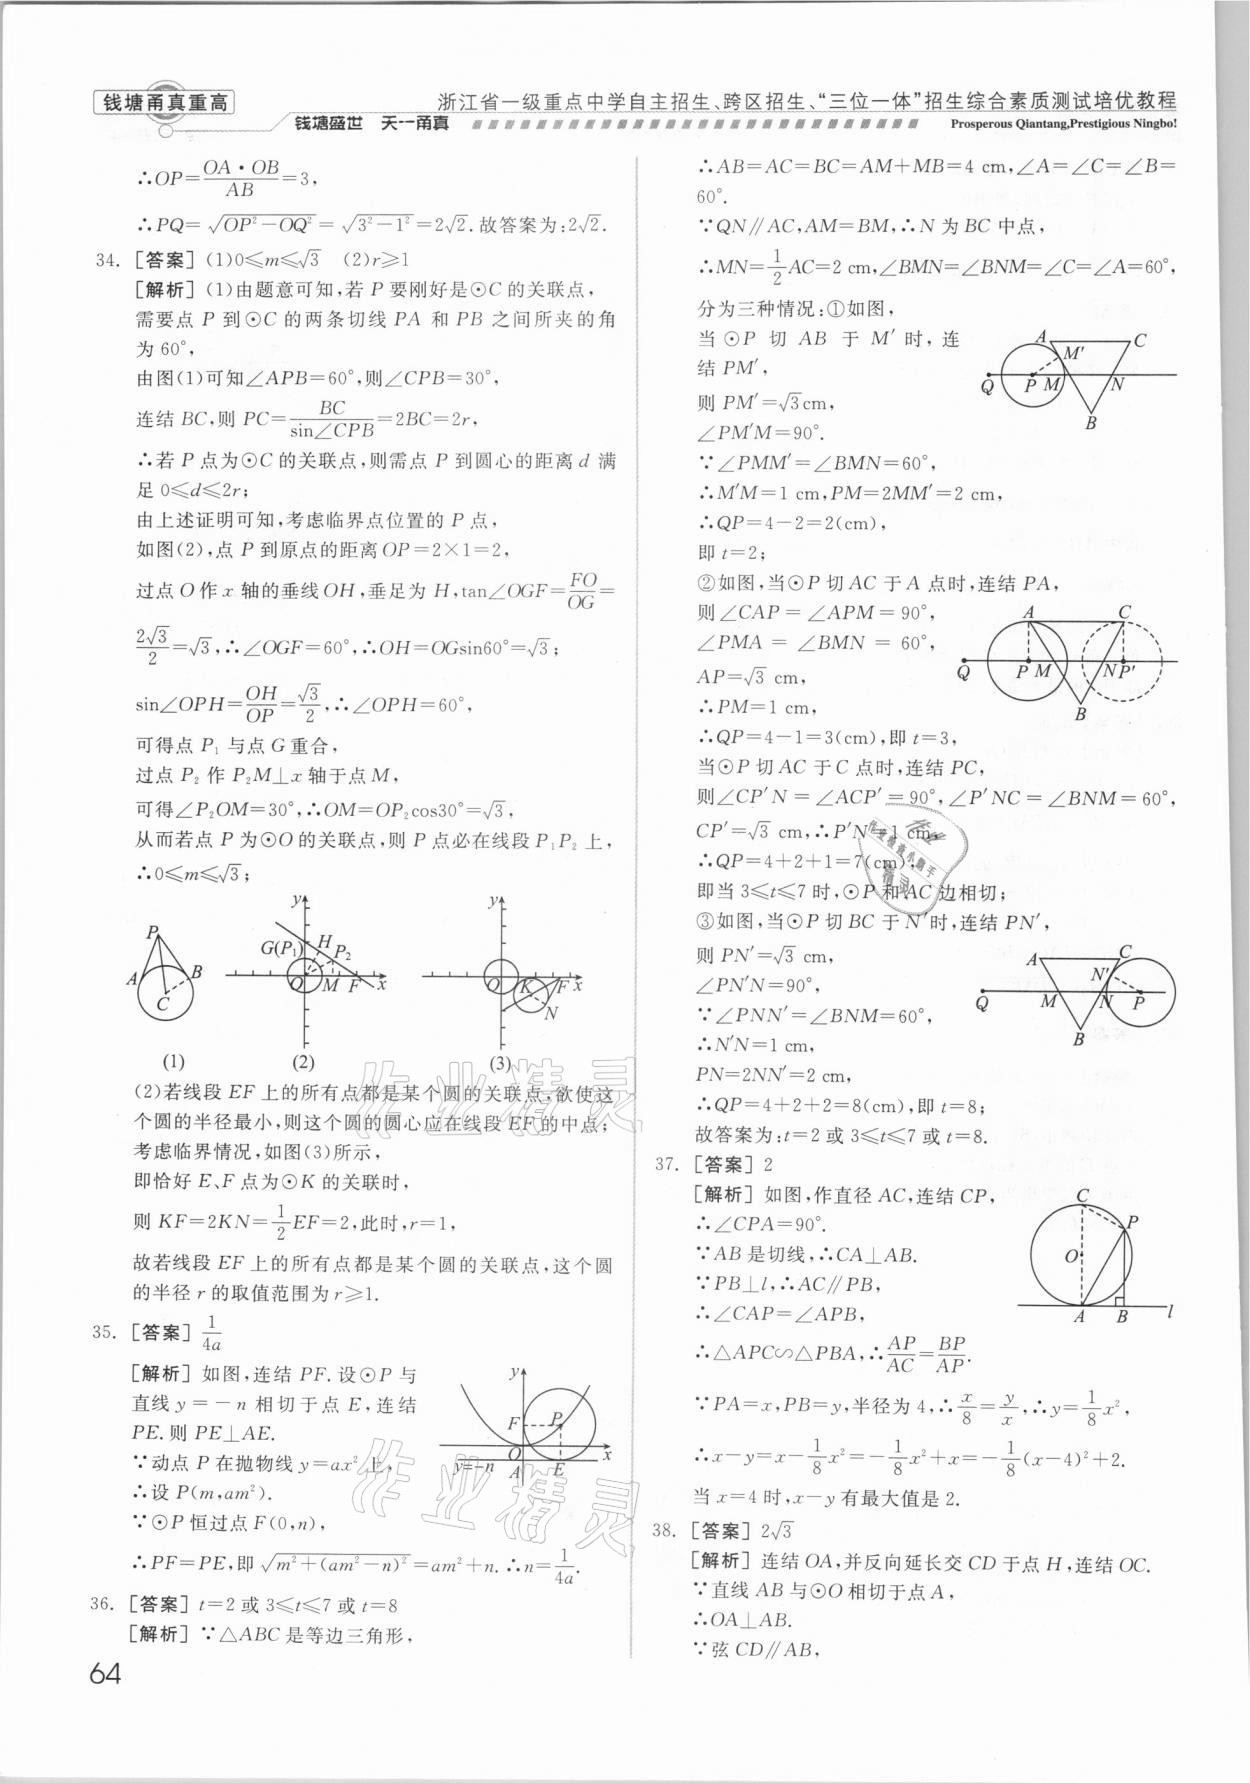 钱塘甬真重高
浙江省一级重点中学自主招生、跨区招生、“三位一体”招生综合素质测试培优教程
钱塘盛世 天一甬真
Prosperous Qiantang,Prestigious Ningbo!
∴OP=OA·OB/AB=3,
∴PQ=√(OP²-OQ²)=√(3²-1²)=2√2.故答案为:2√2.
34.[答案](1)0≤m≤√3 (2)r≥1
[解析](1)由题意可知,若 P 要刚好是⊙C 的关联点,
需要点 P 到⊙C 的两条切线 PA 和 PB 之间所夹的角
为 60°,
由图(1)可知∠APB=60°,则∠CPB=30°,
连结 BC,则 PC=BC/sin∠CPB=2BC=2r,
∴若 P 点为⊙C 的关联点,则需点 P 到圆心的距离 d 满
足 0≤d≤2r;
由上述证明可知,考虑临界点位置的 P 点,
如图(2),点 P 到原点的距离 OP=2×1=2,
过点 O 作 x 轴的垂线 OH,垂足为 H,tan∠OGF=FO/OG=
2√3/2=√3,∴∠OGF=60°,∴OH=OGsin60°=√3;
sin∠OPH=OH/OP=√3/2,∴∠OPH=60°,
可得点 P₁ 与点 G 重合,
过点 P₂ 作 P₂M⊥x 轴于点 M,
可得∠P₂OM=30°,∴OM=OP₂cos30°=√3,
从而若点 P 为⊙O 的关联点,则 P 点必在线段 P₁P₂ 上,
∴0≤m≤√3;
P A B C
(1)
y G(P₁) H P₂ O M F x
(2)
y O K F x N
(3)
(2)若线段 EF 上的所有点都是某个圆的关联点,欲使这
个圆的半径最小,则这个圆的圆心应在线段 EF 的中点;
考虑临界情况,如图(3)所示,
即恰好 E、F 点为⊙K 的关联时,
则 KF=2KN=1/2EF=2,此时,r=1,
故若线段 EF 上的所有点都是某个圆的关联点,这个圆
的半径 r 的取值范围为 r≥1.
35.[答案]1/4a
[解析]如图,连结 PF.设⊙P 与
直线 y=-n 相切于点 E,连结
PE.则 PE⊥AE.
∵动点 P 在抛物线 y=ax² 上,
∴设 P(m,am²).
∵⊙P 恒过点 F(0,n),
∴PF=PE,即√(m²+(am²-n)²)=am²+n.∴n=1/4a.
y F P O x y=-n A E
36.[答案]t=2 或 3≤t≤7 或 t=8
[解析]∵△ABC 是等边三角形,
64
∴AB=AC=BC=AM+MB=4 cm,∠A=∠C=∠B=
60°.
∵QN∥AC,AM=BM,∴N 为 BC 中点,
∴MN=1/2AC=2 cm,∠BMN=∠BNM=∠C=∠A=60°,
分为三种情况:①如图,
当⊙P 切 AB 于 M′时,连
结 PM′,
则 PM′=√3cm,
∠PM′M=90°.
∵∠PMM′=∠BMN=60°,
∴M′M=1 cm,PM=2MM′=2 cm,
∴QP=4-2=2(cm),
即 t=2;
A C M′ Q P M N B
②如图,当⊙P 切 AC 于 A 点时,连结 PA,
则∠CAP=∠APM=90°,
∠PMA=∠BMN=60°,
AP=√3 cm,
∴PM=1 cm,
∴QP=4-1=3(cm),即 t=3,
当⊙P 切 AC 于 C 点时,连结 PC,
则∠CP′N=∠ACP′=90°,∠P′NC=∠BNM=60°,
CP′=√3 cm,∴P′N=1 cm,
∴QP=4+2+1=7(cm),
即当 3≤t≤7 时,⊙P 和 AC 边相切;
A C Q P M N P′ B
③如图,当⊙P 切 BC 于 N′时,连结 PN′,
则 PN′=√3 cm,
∠PN′N=90°,
∵∠PNN′=∠BNM=60°,
∴N′N=1 cm,
PN=2NN′=2 cm,
∴QP=4+2+2=8(cm),即 t=8;
故答案为:t=2 或 3≤t≤7 或 t=8.
A C N′ Q M N P B
37.[答案]2
[解析]如图,作直径 AC,连结 CP,
∴∠CPA=90°.
∵AB 是切线,∴CA⊥AB.
∵PB⊥l,∴AC∥PB,
∴∠CAP=∠APB,
∴△APC∽△PBA,∴AP/AC=BP/AP.
∵PA=x,PB=y,半径为 4,∴x/8=y/x,∴y=1/8x²,
∴x-y=x-1/8x²=-1/8x²+x=-1/8(x-4)²+2.
当 x=4 时,x-y 有最大值是 2.
C P O A B l
38.[答案]2√3
[解析]连结 OA,并反向延长交 CD 于点 H,连结 OC.
∵直线 AB 与⊙O 相切于点 A,
∴OA⊥AB.
∵弦 CD∥AB,
作业精灵
作业精灵